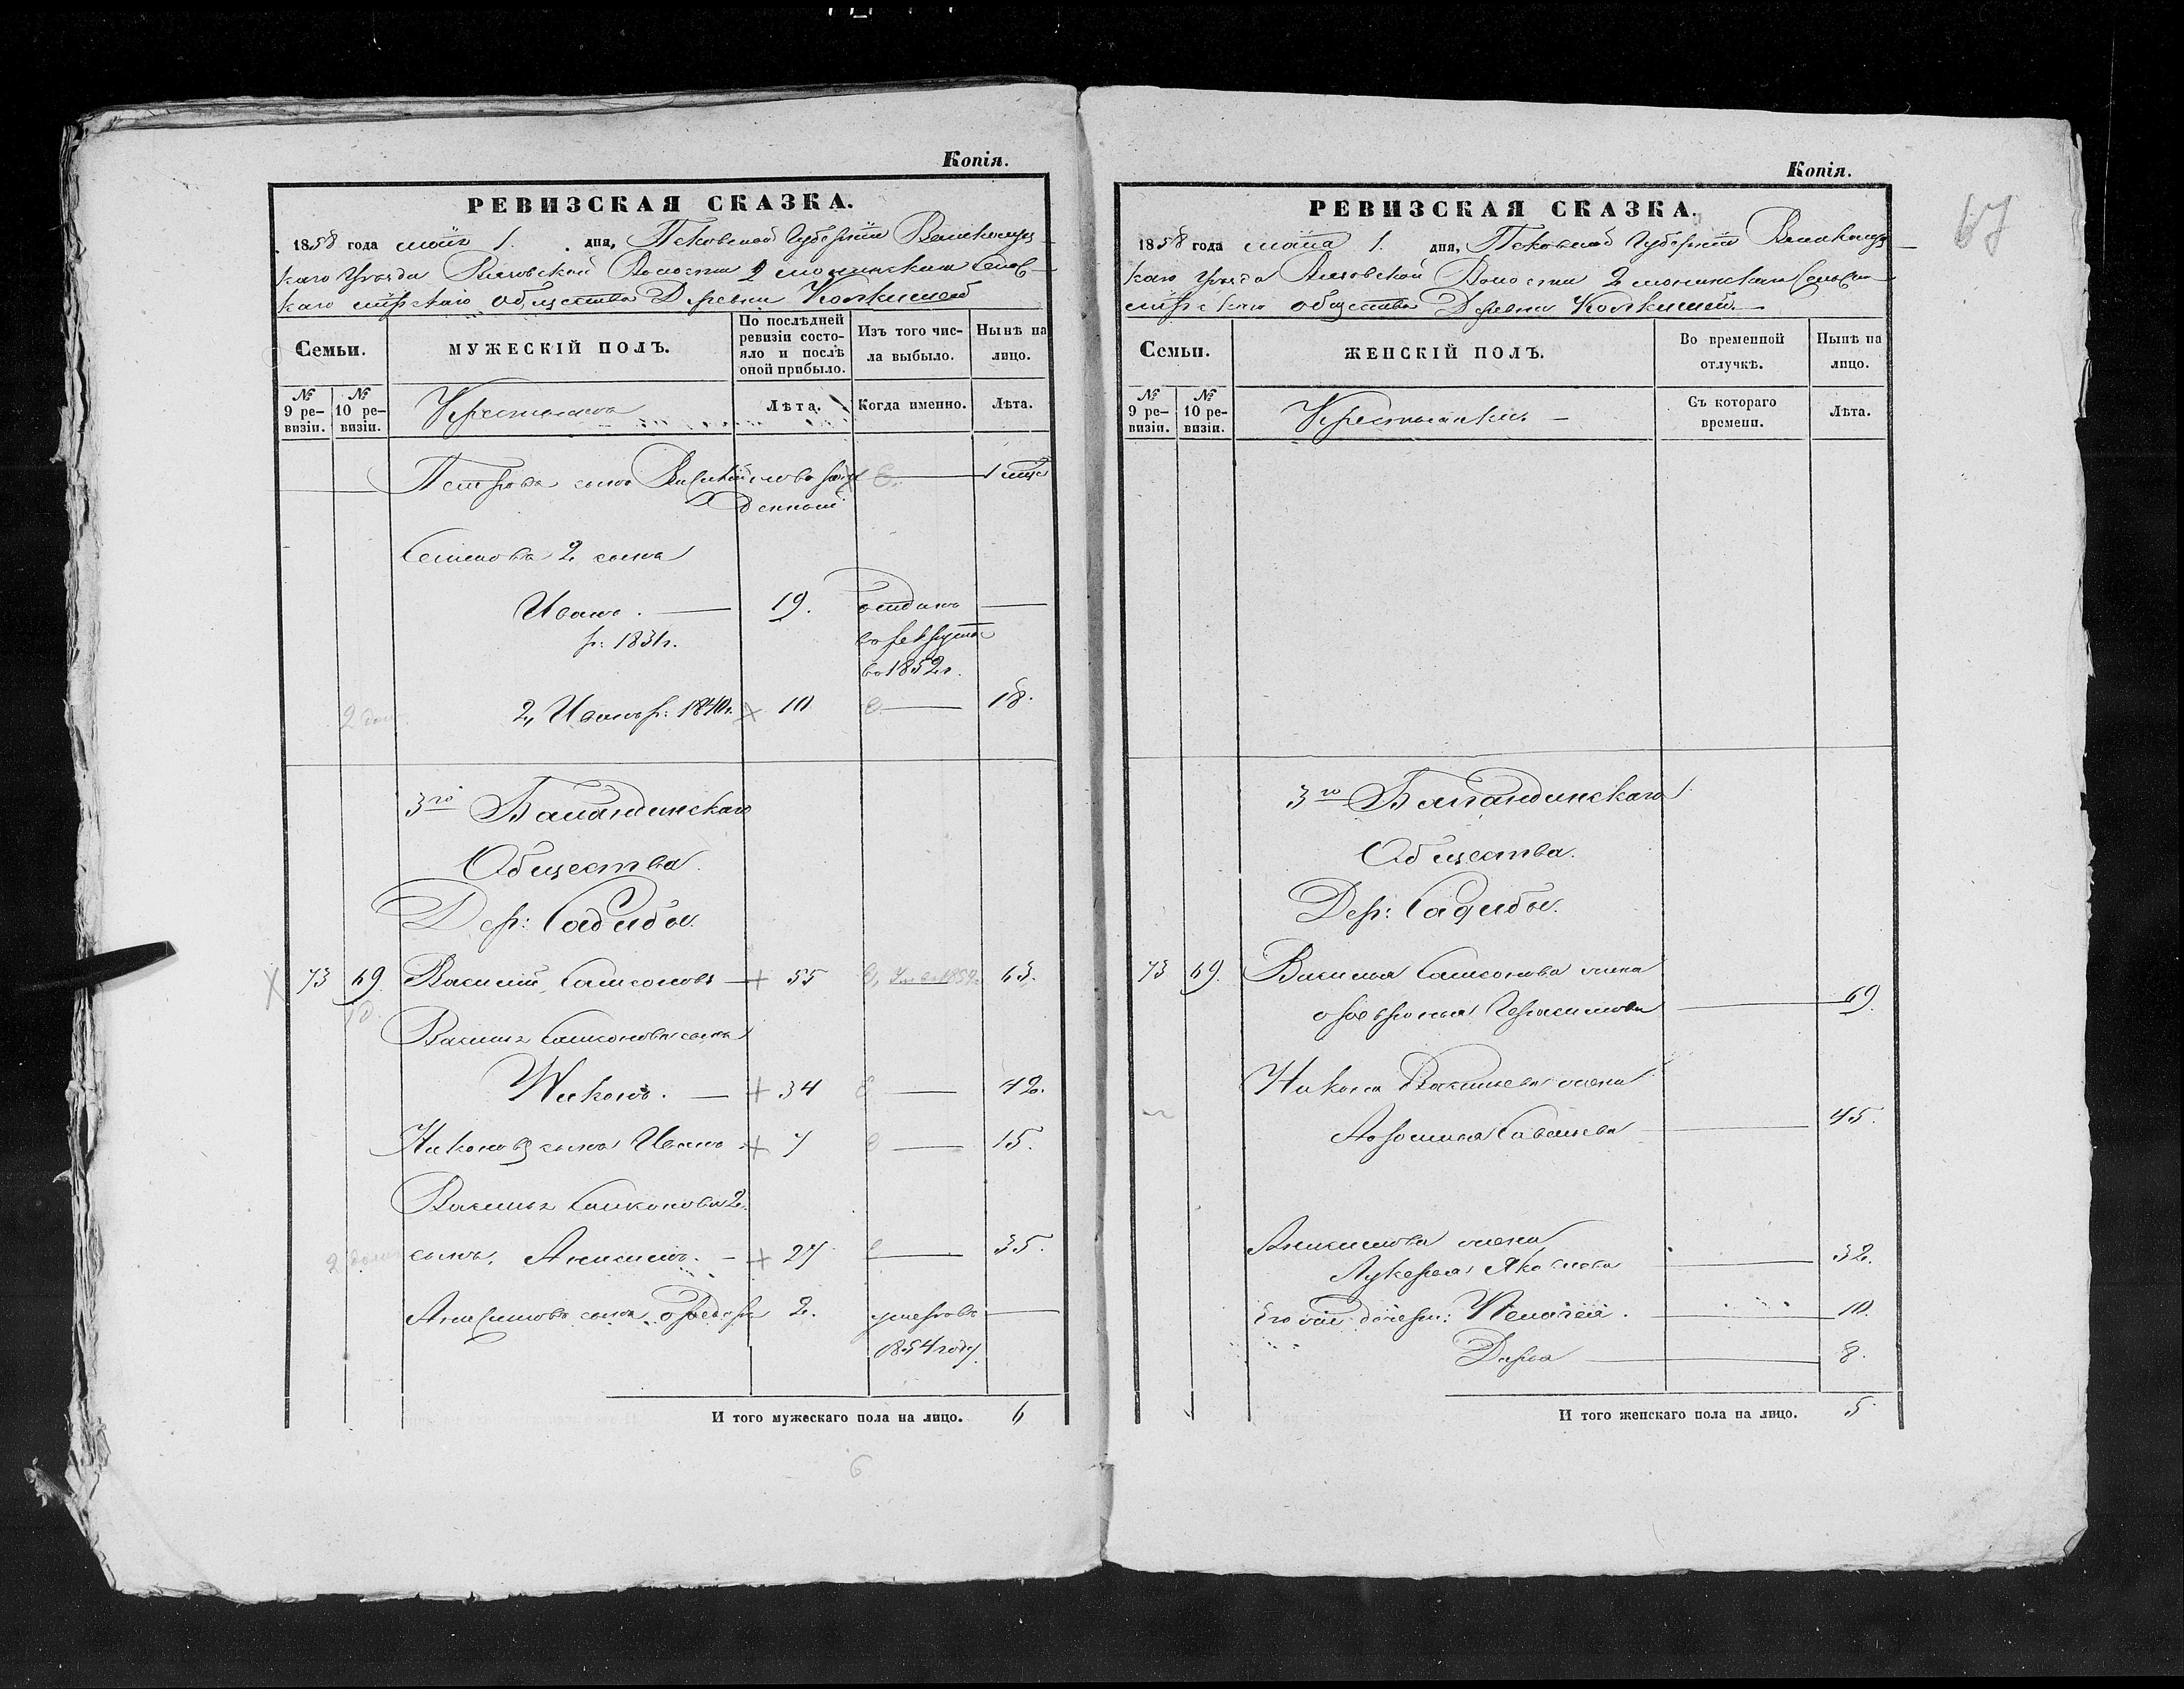 Копія.
РЕВИЗСКАЯ СКАЗКА.
1858 года мая 1. дня, Псковской Губерніи Великолуц-
каго Уѣзда Волости 2
каго мірскаго общества Деревни
Семьи.
МУЖЕСКІЙ ПОЛЪ.
По послѣдней ревизіи состо-яло и послѣ оной прибыло.
Изъ того чис-ла выбыло.
Нынѣ на лицо.
№ 9 ре-визіи.
№ 10 ре-визіи.
Крестьяне
Лѣта.
Когда именно.
Лѣта.
Петрова сынъ рож
денный
Семенова 2 сына
Иванъ. 19. отданъ
р: 1831г. въ рекруты
въ 1852г.
2, Иванъ р: 1840г. 10 18.
3го Баландинскаго
Общества
Дер: Садибы.
73 69 Василій Самсоновъ 55 63.
Василья Самсонова сынъ
Никонъ. 34 42.
Никоновъ сынъ Иванъ 7 15.
Василья Самсонова 2й
сынъ, Анисимъ. 27 35.
Анисимовъ сынъ Ѳедоръ 2. умеръ въ
1854 году
И того мужескаго пола на лицо. 6
6
Копія.
67
РЕВИЗСКАЯ СКАЗКА.
1858 года мая 1. дня, Псковской Губерніи Великолуц-
каго Уѣзда Волости 2
мірскаго общества Деревни
Семьи.
ЖЕНСКІЙ ПОЛЪ.
Во временной отлучкѣ.
Нынѣ на лицо.
№ 9 ре-визіи.
№ 10 ре-визіи.
Крестьянки
Съ котораго времени.
Лѣта.
3го Баландинскаго
Общества.
Дер: Садибы.
73 69. Василья Самсонова жена
Ѳевронья Герасимова 69.
Никона Васильева жена
Савельева 45.
Анисимова жена
Лукерья Яковлева 32.
Его дочери: Пелагея. 10
Дарья 8.
И того женскаго пола на лицо. 5